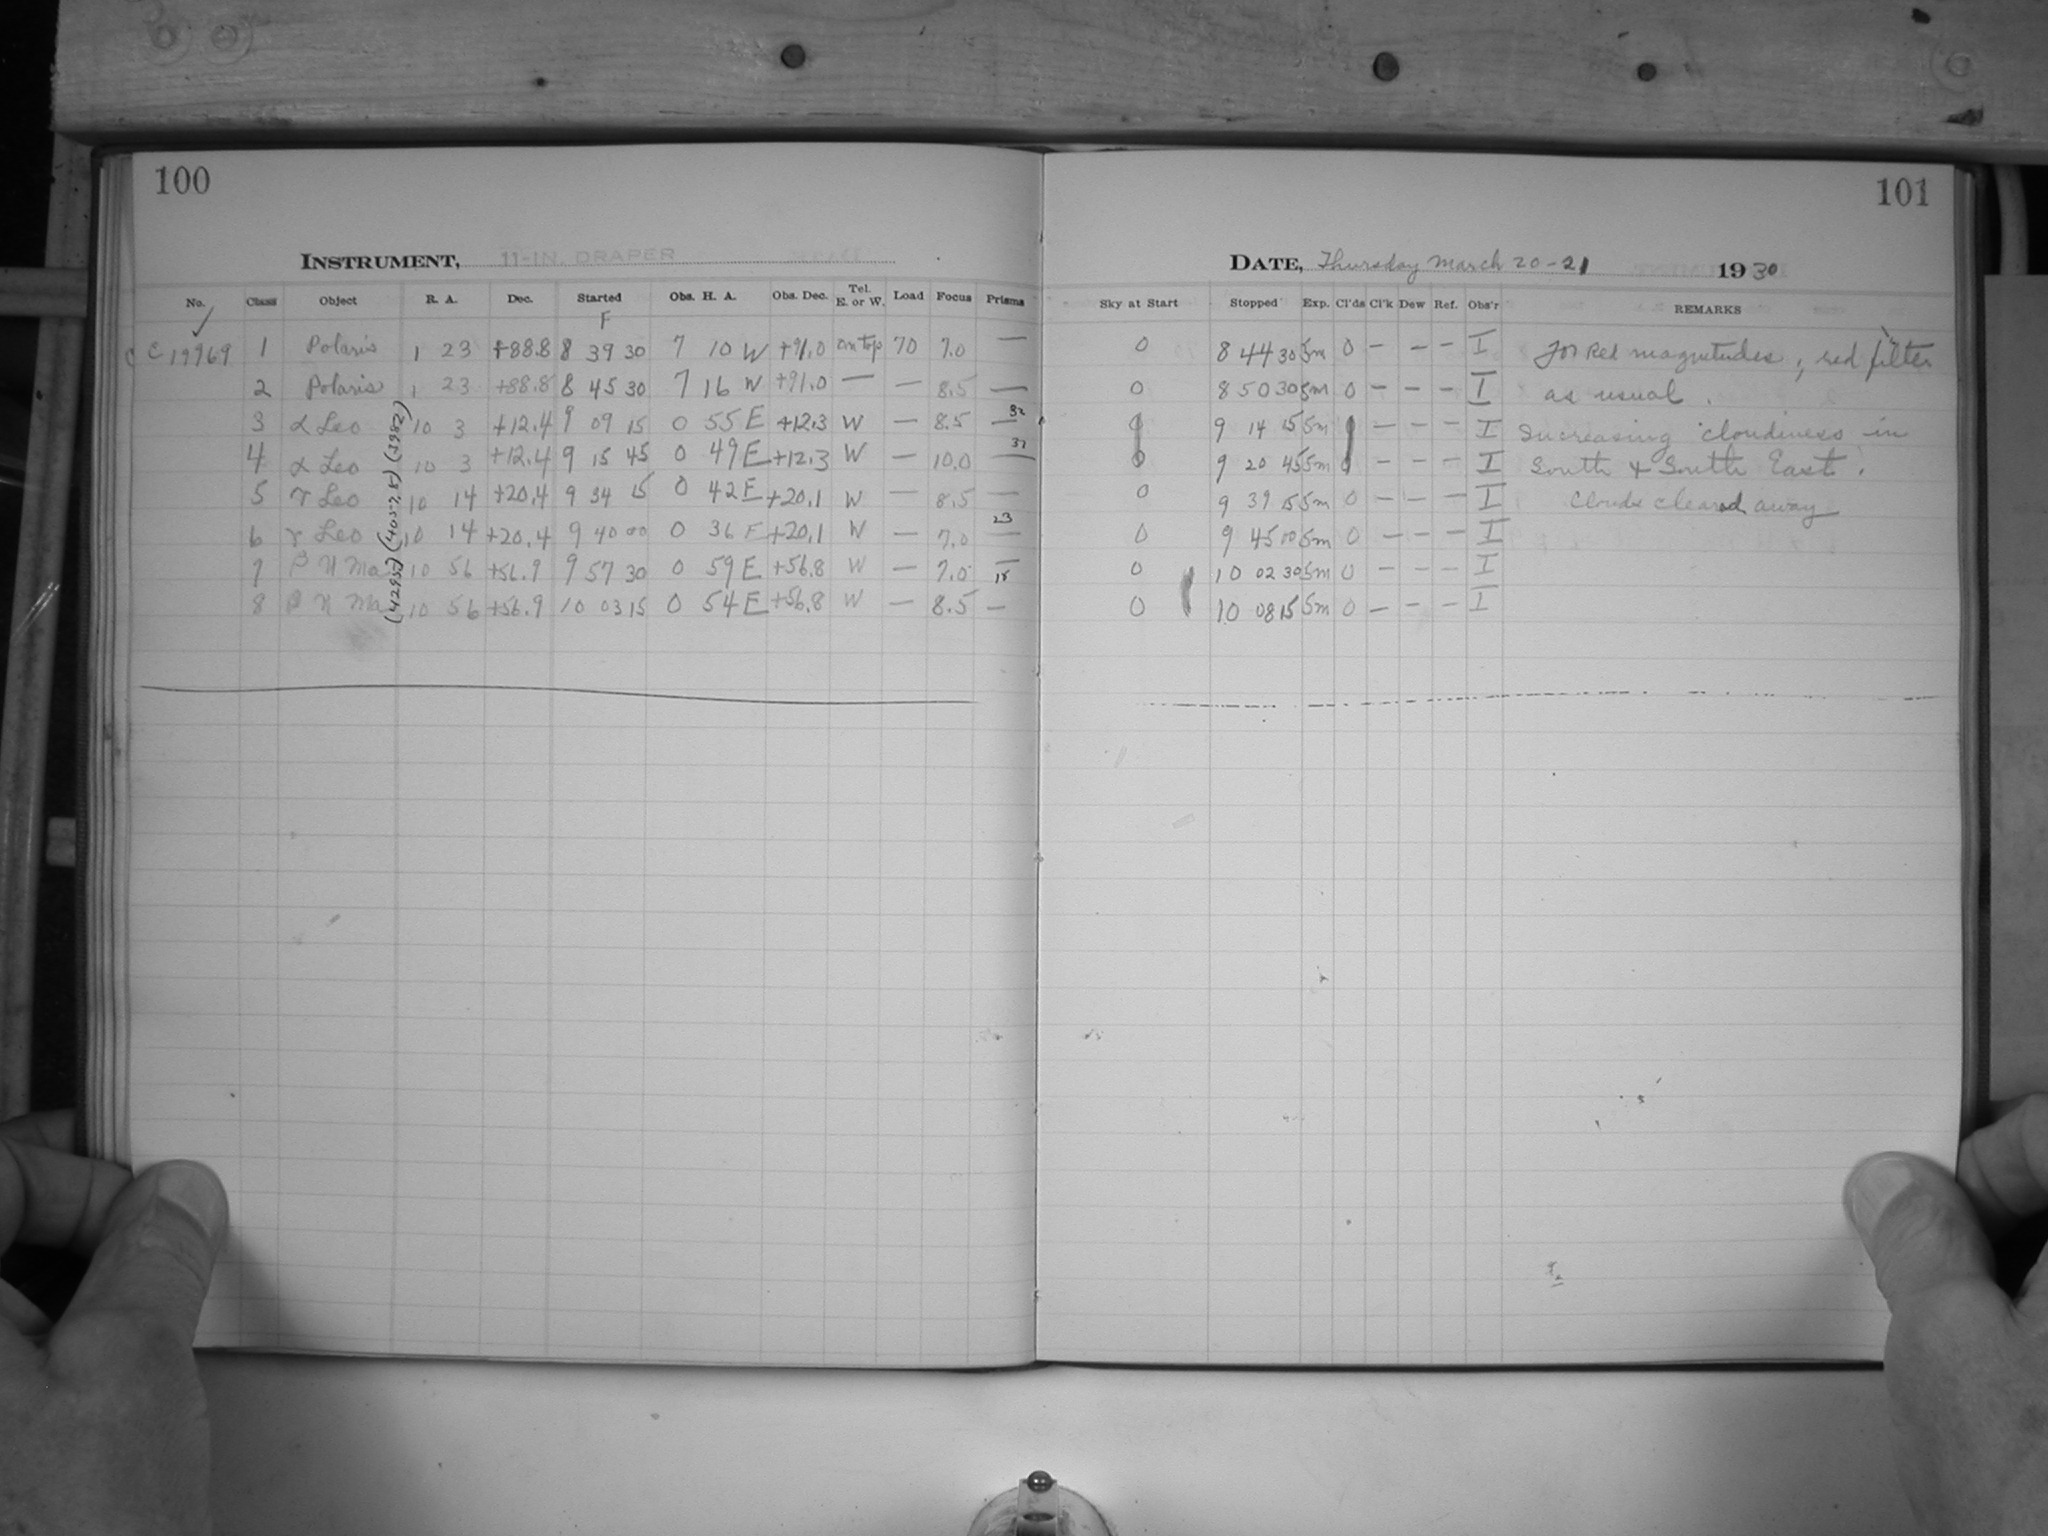 100
INSTRUMENT, 11-IN. DRAPER
No. Class Object R. A. Dec. Started Obs. H. A. Obs. Dec. Tel. E. or W. Load Focus Prisms
F
C C 19969 1 Polaris 1 23 +88.8 8 39 30 7 10 W +91.0 on top 70 7.0 —
2 Polaris 1 23 +88.8 8 45 30 7 16 W +91.0 — — 8.5 —
3 α Leo 10 3 +12.4 9 09 15 0 55 E +12.3 W — 8.5 —
4 α Leo 10 3 +12.4 9 15 45 0 49 E +12.3 W — 10.0 —
5 γ Leo 10 14 +20.4 9 34 15 0 42 E +20.1 W — 8.5 —
6 γ Leo 10 14 +20.4 9 40 00 0 36 E +20.1 W — 7.0 —
7 β U Ma 10 56 +56.9 9 57 30 0 59 E +56.8 W — 7.0 —
8 β U Ma 10 56 +56.9 10 03 15 0 54 E +56.8 W — 8.5 —
(3982)
(4057.8)
(4295)
101
DATE, Thursday March 20-21 1930
Sky at Start Stopped Exp. Cl'ds Cl'k Dew Ref. Obs'r REMARKS
0 8 44 30 5m 0 — — — I For Red magnitudes, red filter
0 8 50 30 5m 0 — — — I as usual.
0 9 14 15 5m — — — I Increasing cloudiness in
0 9 20 45 5m 0 — — — I South & South East.
0 9 39 15 5m 0 — — — I Clouds cleared away
0 9 45 10 5m 0 — — — I
0 10 02 30 5m 0 — — — I
0 10 08 15 5m 0 — — — I